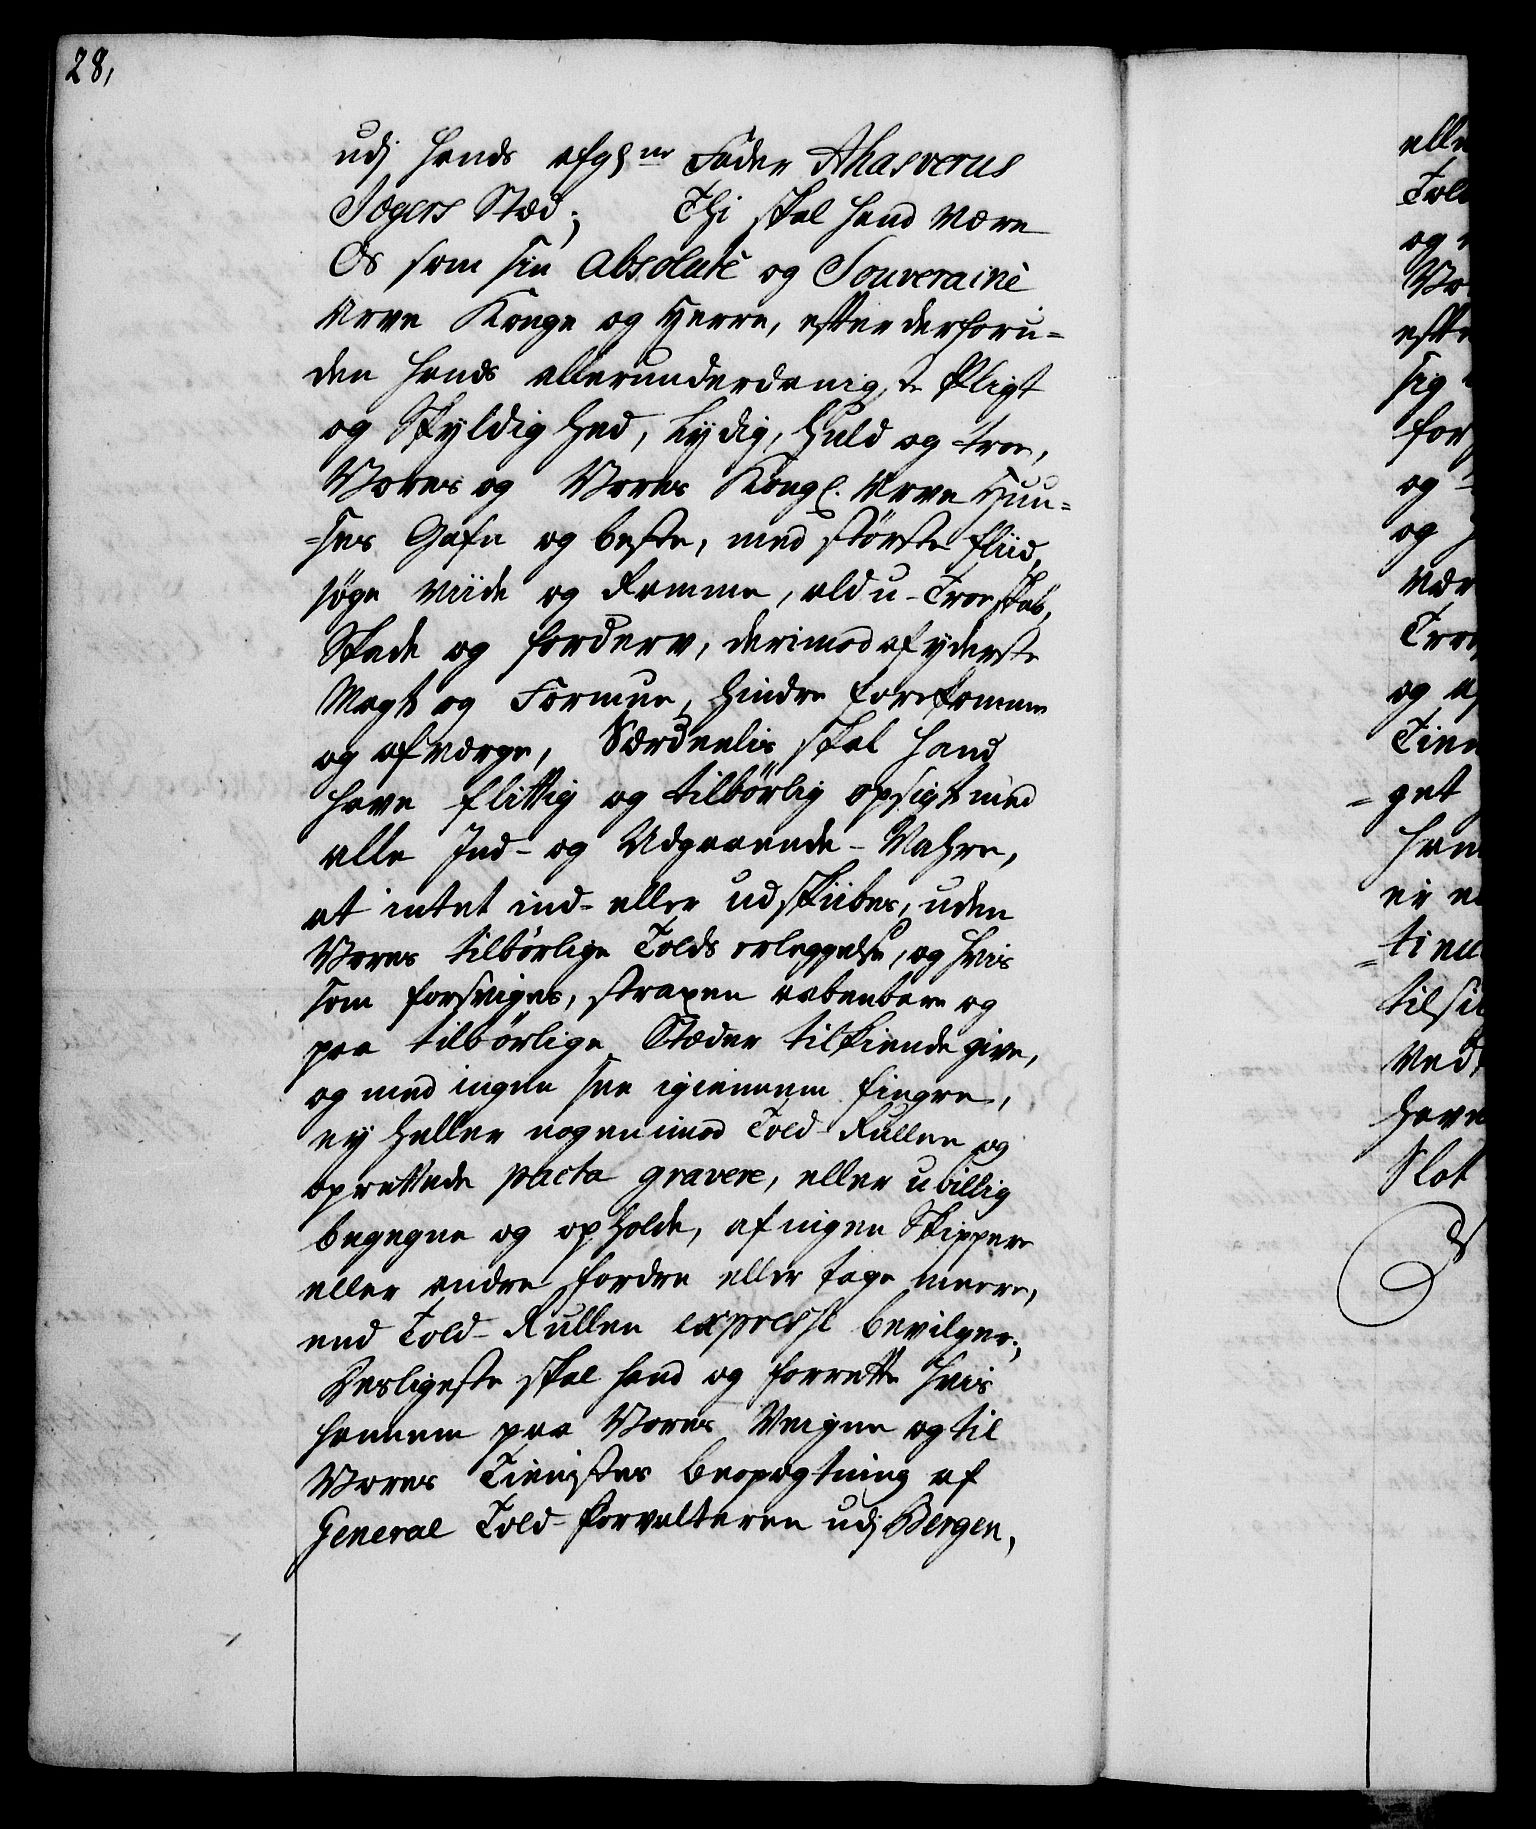 28,
udj Hands afgl:ne Fader Ahasverus
Jægers Stæd; Thi skal Hand være
Os som sin Absolute og Souveraine
Arve Konge og Herre, efter derforu-
den Hands allerunderdanigste Pligt
og Skyldighed, Lydig, Huld og troe,
Vores og Vores Kongl. Arve Huu-
=ses Gafn og beste, med største Fliid,
søge viide og Ramme, ald u-Troeskab,
Skade og forderv, derimod af yderste
Magt og Formue, hindre forekomme
og afværge, Særdeelis skal Hand
have flittig og tilbörlig opsigt med
alle Ind- og Udgaaende-Vahre,
at intet ind- eller udskibes, uden
Vores tilbörlige Tolds erleggelse, og hvis
som forsviges, straxen aabenbare og
paa tilbörlige Stæder tilkiende give,
og med ingen see igiennem fingre,
ey heller nogen imod Told-Rullen og
oprettede pacta gravere, eller ubillig
begegne og opholde, af ingen Skippere
eller andre fordre eller tage meere,
end Told-Rullen expresse bevilger;
Desligeste skal Hand og forrette hvis
hannem paa Vores Veigne og til
Vores Tienistes beopagtning af
General Told-forvalteren udj Bergen,
elle
Tol
og
Vo
efte
sig
for
og
og
vær
Tro
og af
Tien
=get
han
er
=tien
tilsi
Ved
have
Slot